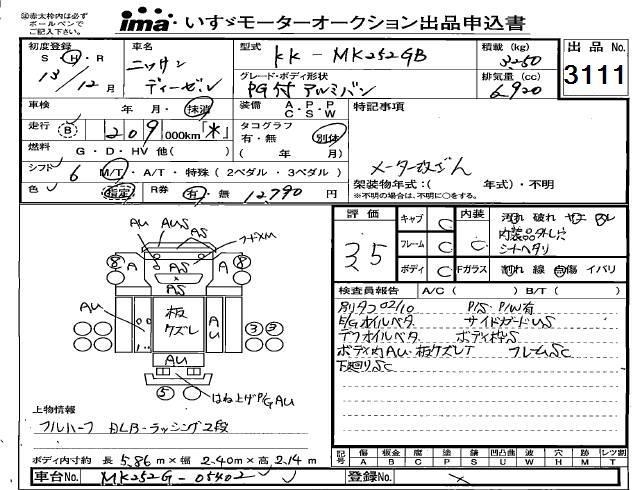 ㊟赤太枠内は必ず
ボールペンで
ご記入下さい。
ima いすゞモーターオークション出品申込書
初度登録
S H・R
13/12月
車名
ニッサン
ディーゼル
型式
KK-MK252GB
グレード・ボディ形状
PG付 アルミバン
積載 (kg)
3250
排気量 (cc)
6920
出品 No.
3111
車検 年 月・抹消
装備 A・P・P
C・S・W
特記事項
走行 B 209,000km「*」
タコグラフ
有・無 別体
( 年 月)
燃料 G・D・HV 他( )
シフト 6 M/T・A/T・特殊(2ペダル・3ペダル)
メーター改ざん
架装物年式:( 年式)・不明
※不明の場合は、不明に○をする。
色 指定 R券 有・無 12,790 円
評価
3.5
キャブ C
フレーム C
ボディ C
内装 C
汚れ 破れ
内装品外し穴
シートヘタリ
Fガラス 割れ 線 点傷 イバリ
検査員報告 A/C( ) B/T( )
別タコ 02/10 P/S・P/W有
E/Gオイルベタ サイドガードUS
デフオイルベタ ボディ枠S
ボディ内AU・板ケズレT フレームSC
下廻りSC
AU
AUS
AS
フードXM
8
A
AS
A
8
AS
AU
板
ケズレ
A
AU
3
AU
5
はね上げP/G AU
上物情報
フルハーフ ラッシング2段
ボディ内寸約 長 5.86m×幅 2.40m×高 2.14m
記号 傷 A 板金 B 腐 C 塗 P 錆 S 凹凸曲 U 波 W 穴 H 跡 M レツ割 T
車台No. MK252G-05402
登録No.